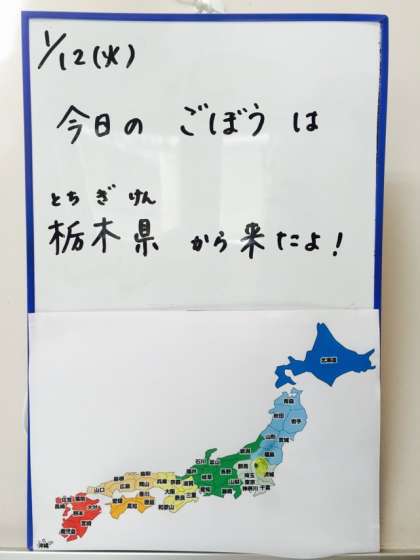 1/12(火)
今日の ごぼう は
とち ぎ けん
栃木県 から来たよ!
北海道
青森
秋田
岩手
山形
宮城
福島
新潟
石川 富山
福井
長野
群馬
茨城
埼玉
東京
千葉
神奈川
山梨
岐阜
愛知
三重
滋賀
京都
兵庫
大阪
奈良
和歌山
鳥取
島根
岡山
広島
山口
香川
愛媛
高知
福岡
佐賀
長崎
大分
熊本
宮崎
鹿児島
沖縄